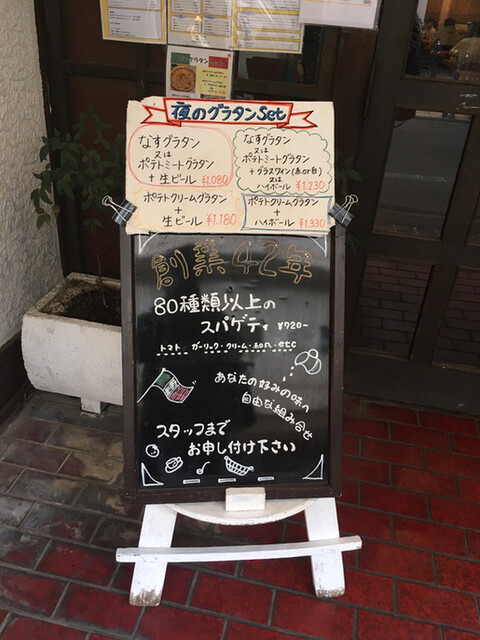 グラタン
夜のグラタンSet
なすグラタン
又は
ポテトミートグラタン
+ 生ビール ¥1.080
なすグラタン
又は
ポテトミートグラタン
+ グラスワイン(赤or白)
又は
ハイボール ¥1.230
ポテトクリームグラタン
+
生ビール ¥1.180
ポテトクリームグラタン
+
ハイボール ¥1.330
創業42年
80種類以上の
スパゲティ ¥720~
トマト・ガーリック・クリーム・etc
あなたの好みの味へ
自由な組み合せ
スタッフまで
お申し付け下さい